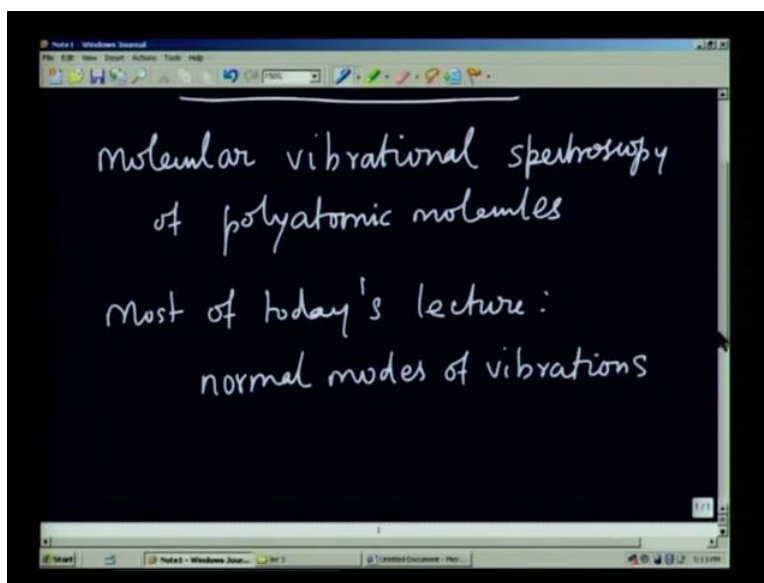 Note1 - Windows Journal
File Edit View Insert Actions Tools Help
150%
molecular vibrational spectroscopy
of polyatomic molecules
Most of today's lecture:
normal modes of vibrations
1/1
Start
Note1 - Windows Jour...
Untitled Document - Mic...